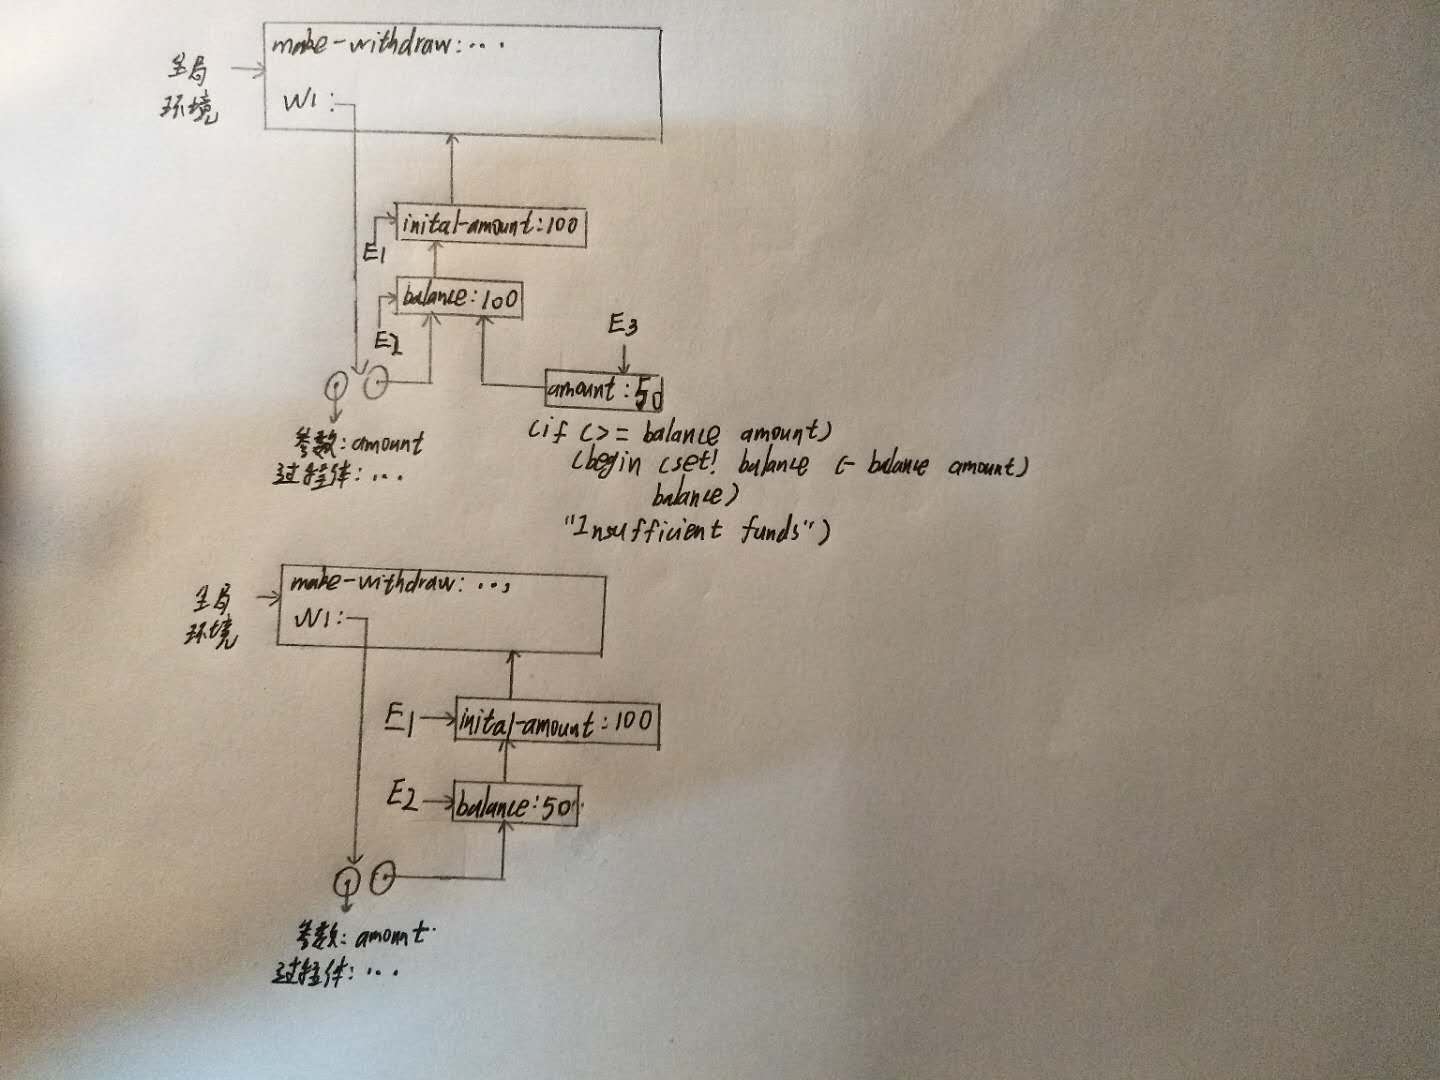 make-withdraw: ...
全局
环境
W1:
inital-amount:100
E1
balance:100
E2
E3
amount:50
参数: amount
过程体: ...
(if (>= balance amount)
(begin (set! balance (- balance amount)
balance)
"Insufficient funds")
make-withdraw: ...
全局
环境
W1:
E1
inital-amount:100
E2
balance:50
参数: amount
过程体: ...